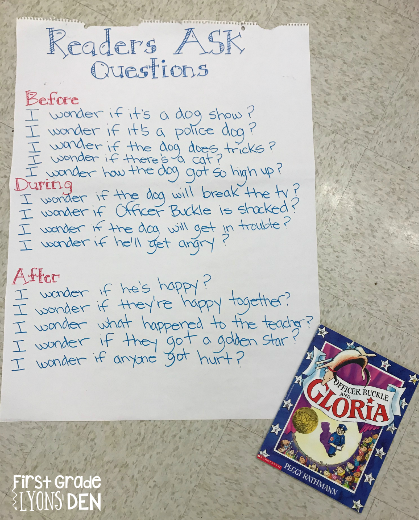 Readers ASK
Questions
Before
I wonder if it's a dog show?
I wonder if it's a police dog?
I wonder if the dog does tricks?
I wonder if there's a cat?
I wonder how the dog got so high up?
During
I wonder if the dog will break the tv?
I wonder if Officer Buckle is shocked?
I wonder if the dog will get in trouble?
I wonder if he'll get angry?
After
I wonder if he's happy?
I wonder if they're happy together?
I wonder what happened to the teacher?
I wonder if they got a golden star?
I wonder if anyone got hurt?
OFFICER BUCKLE
AND
GLORIA
PEGGY RATHMANN
First Grade
LYONS DEN